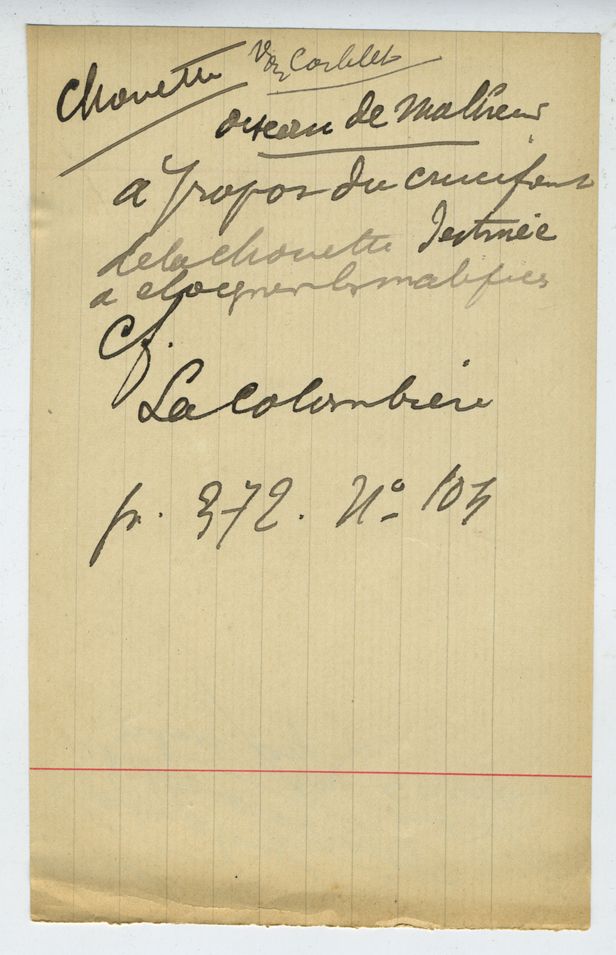 Chouette Voy Corblet
oiseau de malheur
à propos du crucifiement
de la chouette destinée
à eloigner les malefices
Cf.
La Colombière
p. 372. No 105